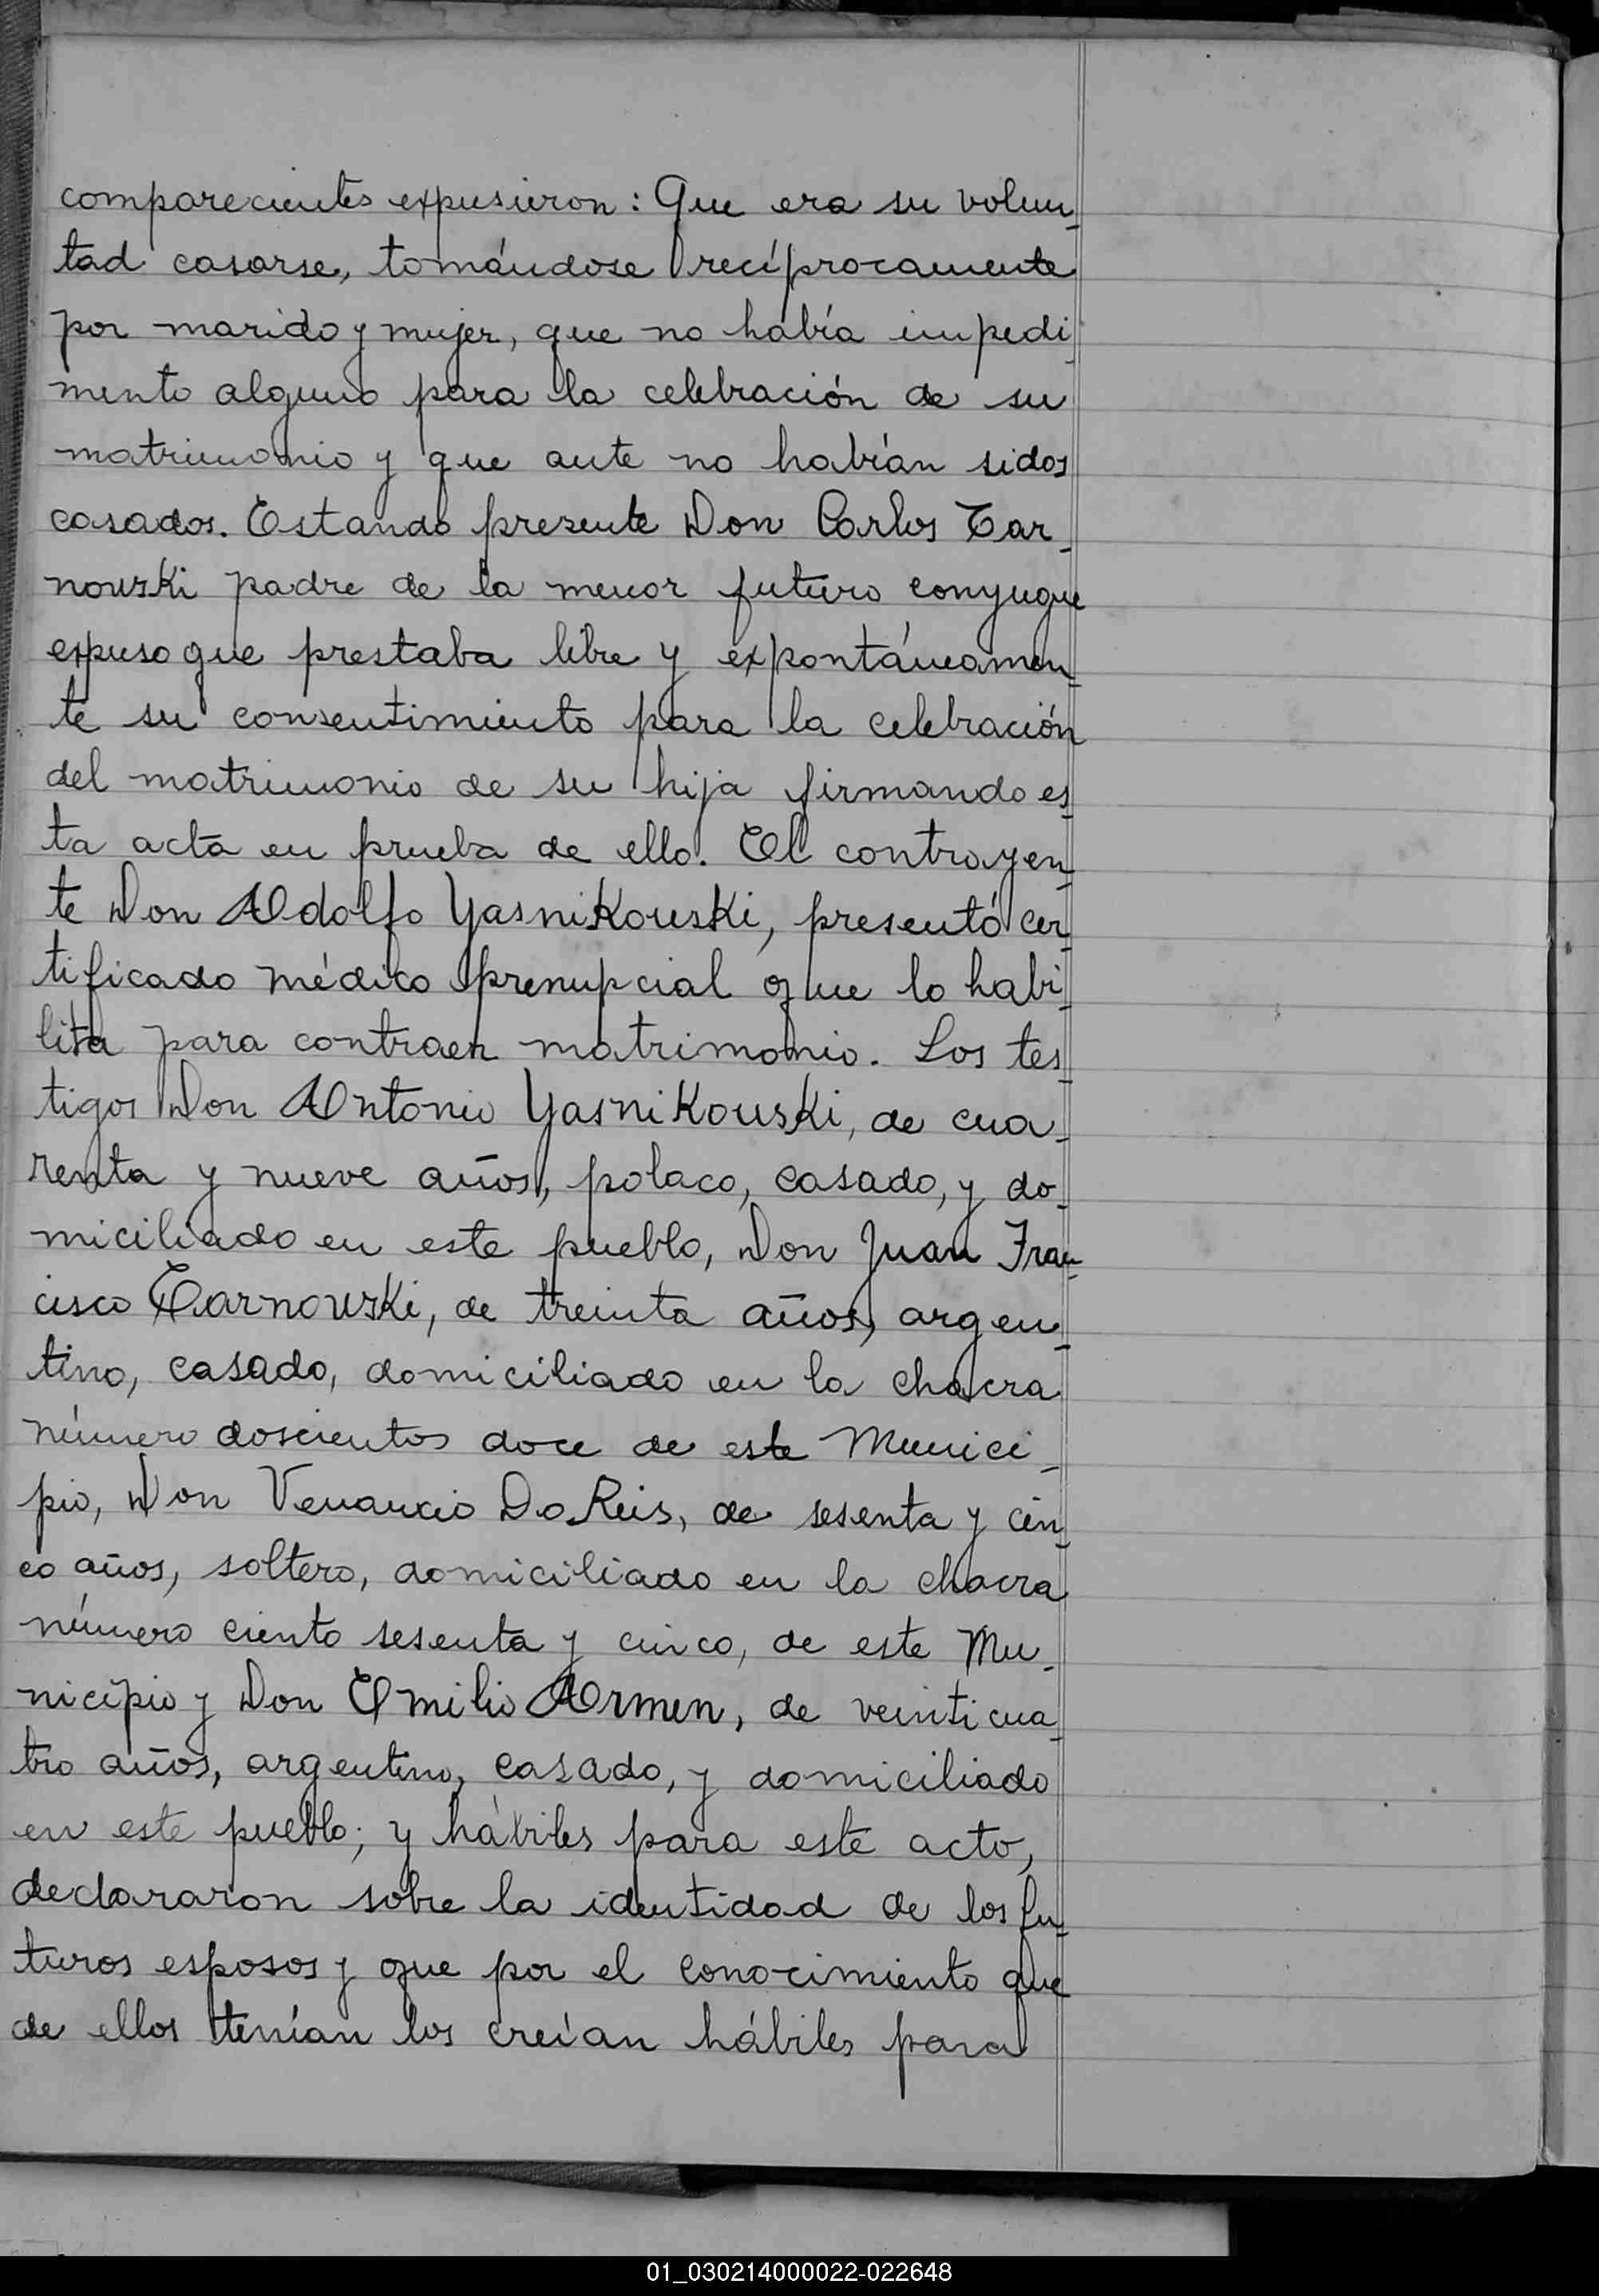 comparecientes expusieron: Que era su volun_
tad casarse, tomándose recíprocamente
por marido y mujer, que no había impedi_
mento alguno para la celebración de su
matrimonio y que ante no habían sidos
casados. Estando presente Don Carlos Tar_
nouski padre de la menor futuro conyugue
expuso que prestaba libre y expontáneamen_
te su consentimiento para la celebración
del matrimonio de su hija firmando es_
ta acta en prueba de ello. El contrayen_
te Don Adolfo Yasnikouski, presentó cer_
tificado médico prenupcial que lo habi_
lita para contraer matrimonio. Los tes_
tigos Don Antonio Yasnikouski, de cua_
renta y nueve años, polaco, casado, y do_
miciliado en este pueblo, Don Juan Fran_
cisco Tarnouski, de treinta años, argen_
tino, casado, domiciliado en la chacra
número doscientos doce de este Munici_
pio, Don Venancio Do Reis, de sesenta y cin_
co años, soltero, domiciliado en la chacra
número ciento sesenta y cinco, de este Mu_
nicipio y Don Emilio Armen, de veinticua_
tro años, argentino, casado, y domiciliado
en este pueblo; y hábiles para este acto,
declararon sobre la identidad de los fu_
turos esposos y que por el conocimiento que
de ellos tenían los creían hábiles para
01_030214000022-022648